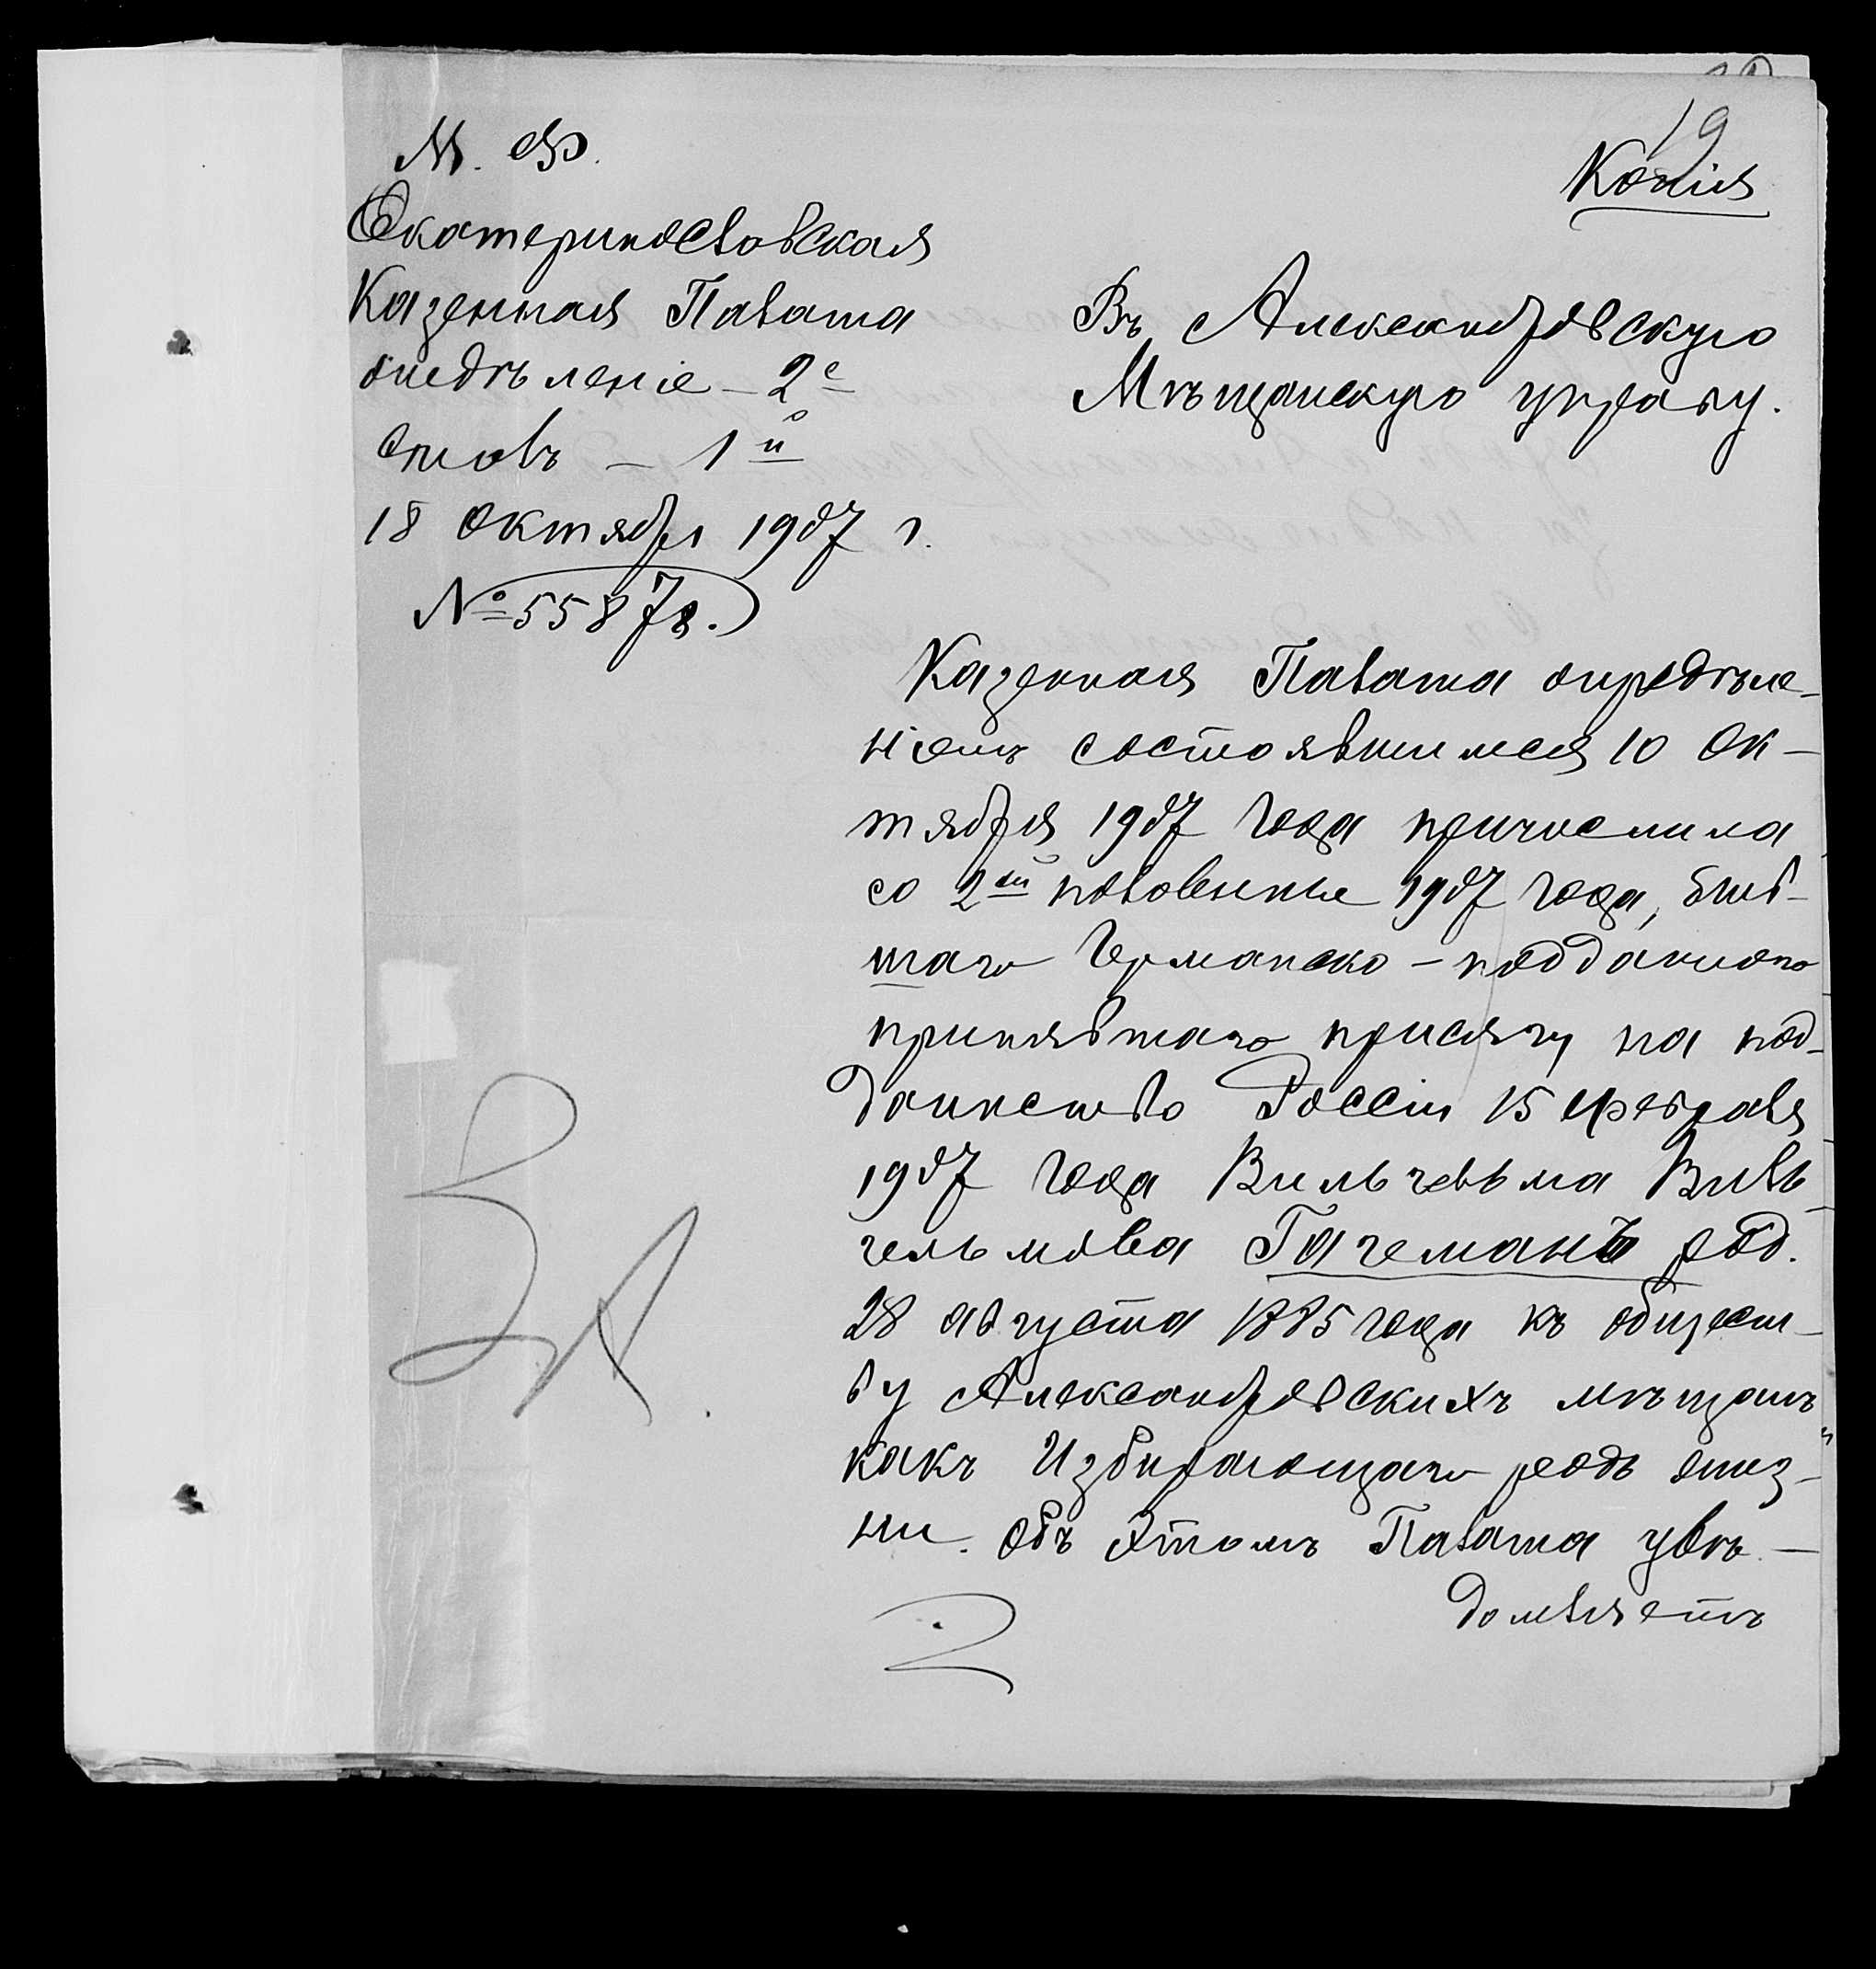 19
Копія
М. Ф.
Екатеринославская
Казенная Палата
отдѣленіе – 2е
столъ – 1й
18 Октября 1907 г.
№ 55878.
Въ Александровскую
Мѣщанскую управу.
Казенная Палата опредѣле-
ніемъ состоявшимся 10 Ок-
тября 1907 года причислила
со 2ой половины 1907 года, быв-
шаго Германско-подданного
принявшаго присягу на под-
данство Россіи 15 февраля
1907 года Вильгельма Виль-
гельмова Гагеманъ род.
28 августа 1885 года къ общест-
ву Александровскихъ мѣщанъ
какъ Избирающаго родъ жиз-
ни. Объ этомъ Палата увѣ-
домляетъ